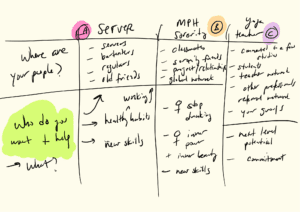 (A) SERVER
MPH
Sorority (B)
Yoga
teacher (C)
Where are
your people?
- servers
- bartenders
- regulars
- old friends
- classmates
- sorority friends
- global network
- students
- teacher network
- other professionals
- referral network
- your gurus
Who do you
want to help
→ What?
working
→ healthy habits
→ new skills
♀ stop
drinking
♀ inner
power
+ inner beauty
- new skills
- next level
potential
- commitment